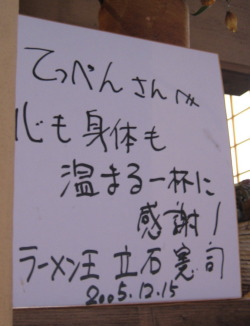 てっぺんさん江
心も身体も
温まる一杯に
感謝！
ラーメン王 立石憲司
2005.12.15